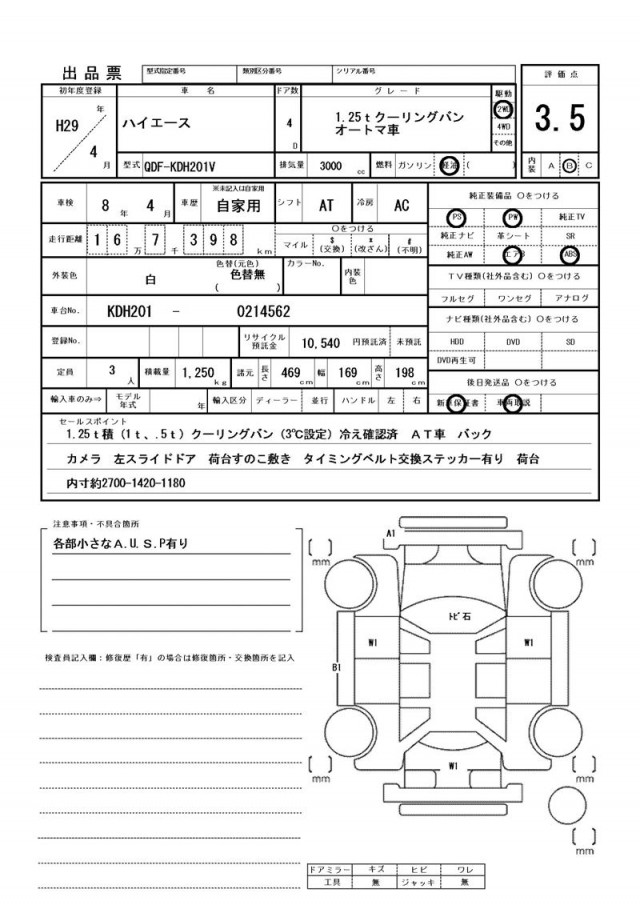 出品票 型式指定番号 類別区分番号 シリアル番号
評価点
3.5
内装 A B C
初年度登録 車名 ドア数 グレード 駆動
H29 年 4 月
ハイエース
4 D
1.25tクーリングバン
オートマ車
2WD
4WD
その他
型式 QDF-KDH201V 排気量 3000 cc 燃料 ガソリン 軽油 ( )
車検 8 年 4 月 車歴 ※未記入は自家用 自家用 シフト AT 冷房 AC
走行距離 1 6 万 7 千 3 9 8 km
〇をつける
マイル $ (交換) * (改ざん) # (不明)
外装色 白 色替(元色) 色替無 ( ) カラーNo. 内装色
車台No. KDH201 - 0214562
登録No. リサイクル預託金 10,540 円預託済 未預託
定員 3 人 積載量 1,250 kg 諸元 長さ 469 cm 幅 169 cm 高さ 198 cm
輸入車のみ⇒ モデル年式 年 輸入区分 ディーラー 並行 ハンドル 左 右
純正装備品 〇をつける
PS PW 純正TV
純正ナビ 革シート SR
純正AW エアB ABS
TV種類(社外品含む)〇をつける
フルセグ ワンセグ アナログ
ナビ種類(社外品含む)〇をつける
HDD DVD SD
DVD再生可
後日発送品 〇をつける
新車保証書 車両取説
セールスポイント
1.25t積(1t、.5t)クーリングバン(3℃設定)冷え確認済 AT車 バック
カメラ 左スライドドア 荷台すのこ敷き タイミングベルト交換ステッカー有り 荷台
内寸約2700-1420-1180
注意事項・不具合箇所
各部小さなA.U.S.P有り
検査員記入欄：修復歴「有」の場合は修復箇所・交換箇所を記入
A1
[ ] mm
[ ] mm
ﾄﾋﾞ石
W1
W1
B1
W1
[ ] mm
[ ] mm
[ ] mm
ドアミラー キズ ヒビ ワレ
工具 無 ジャッキ 無